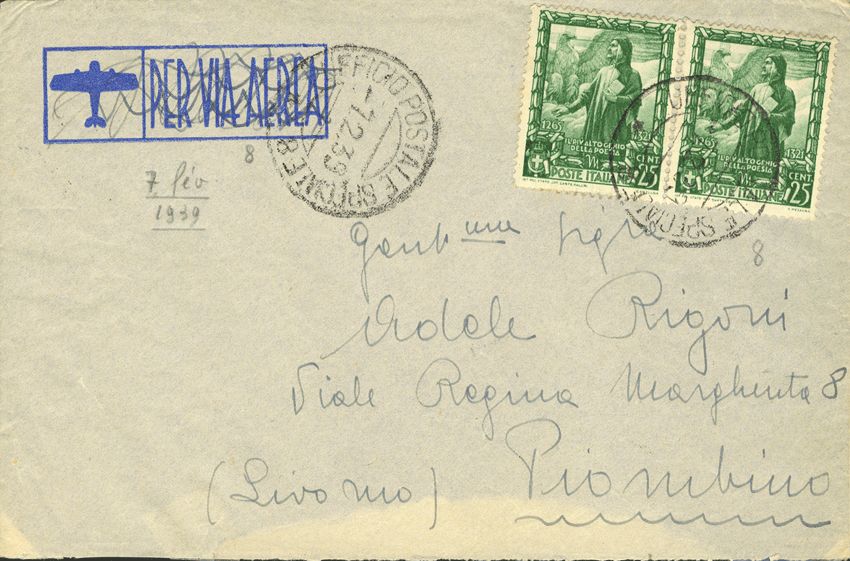 PER VIA AEREA
UFFICIO POSTALE SPECIALE 8
-1.2.39
8
7 fév
1939
1265
1321
IL RIVAL TO GENIO
DELLA POESIA
CENT
POSTE ITALIANE 25
1265
1321
DELLA POESIA
CENT.
POSTE ITALIANE 25
SPECIALE
8
Gent.ma Sig.ra
Adele Rigoni
Viale Regina Margherita 8
(Livorno) Piombino